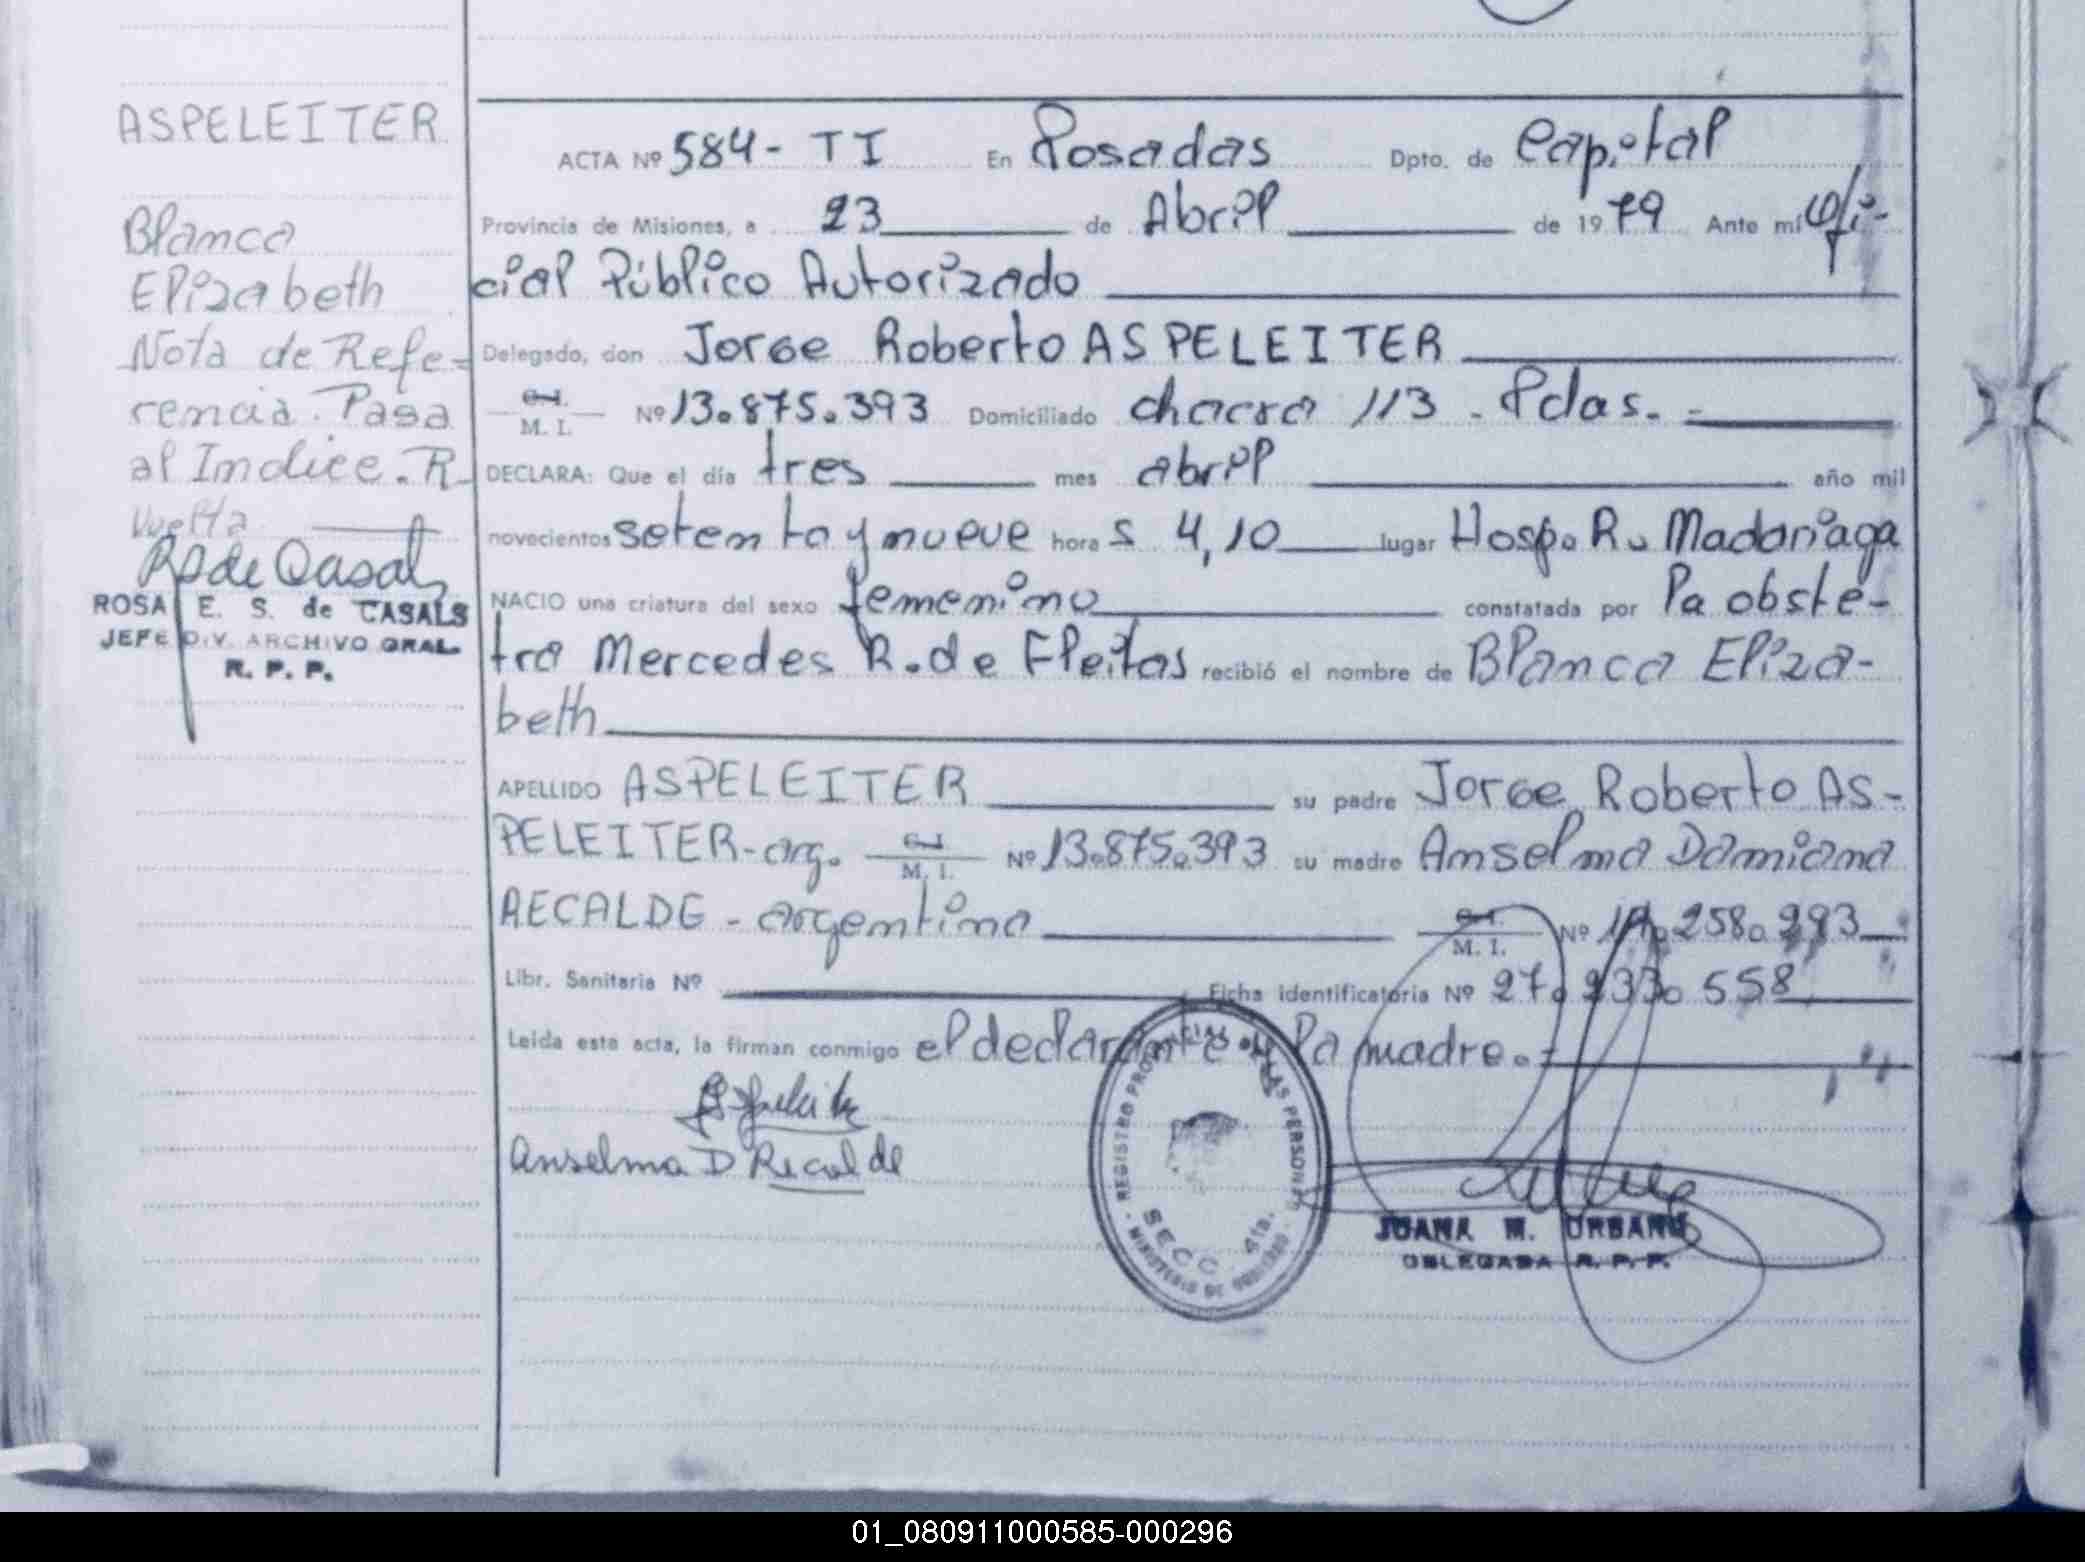 ASPELEITER
Blanca
Elizabeth
Nota de Refe-
rencia. Pasa
al Indice. R.
Vuelta
R de Casals
ROSA E. S. de CASALS
JEFE DIV. ARCHIVO GRAL.
R. P. P.
ACTA Nº 584- TI En Posadas Dpto. de Capital
Provincia de Misiones, a 23 de Abril de 1979 Ante mí Ofi-
cial Público Autorizado
Delegado, don Jorge Roberto ASPELEITER
C.I. M. I. Nº 13.875.393 Domiciliado chacra 113 - Pdas. -
DECLARA: Que el día tres mes abril año mil
novecientos setenta y nueve hora s 4,10 lugar Hosp. R. Madariaga
NACIO una criatura del sexo femenino constatada por la obste-
tra Mercedes R. de Fleitas recibió el nombre de Blanca Eliza-
beth
APELLIDO ASPELEITER su padre Jorge Roberto AS-
PELEITER-arg. C.I. M. I. Nº 13.875.393 su madre Anselma Damiana
RECALDE - argentina C.I. M. I. Nº 258.293
Libr. Sanitaria Nº Ficha identificatoria Nº 27.233.558
Leida esta acta, la firman conmigo el declarante y la madre.-
Anselma D Recalde
REGISTRO PROVINCIAL DE LAS PERSONAS
SECC. 4ta.
MINISTERIO DE GOBIERNO
JUANA M. URBANO
DELEGADA R. P. P.
01_080911000585-000296